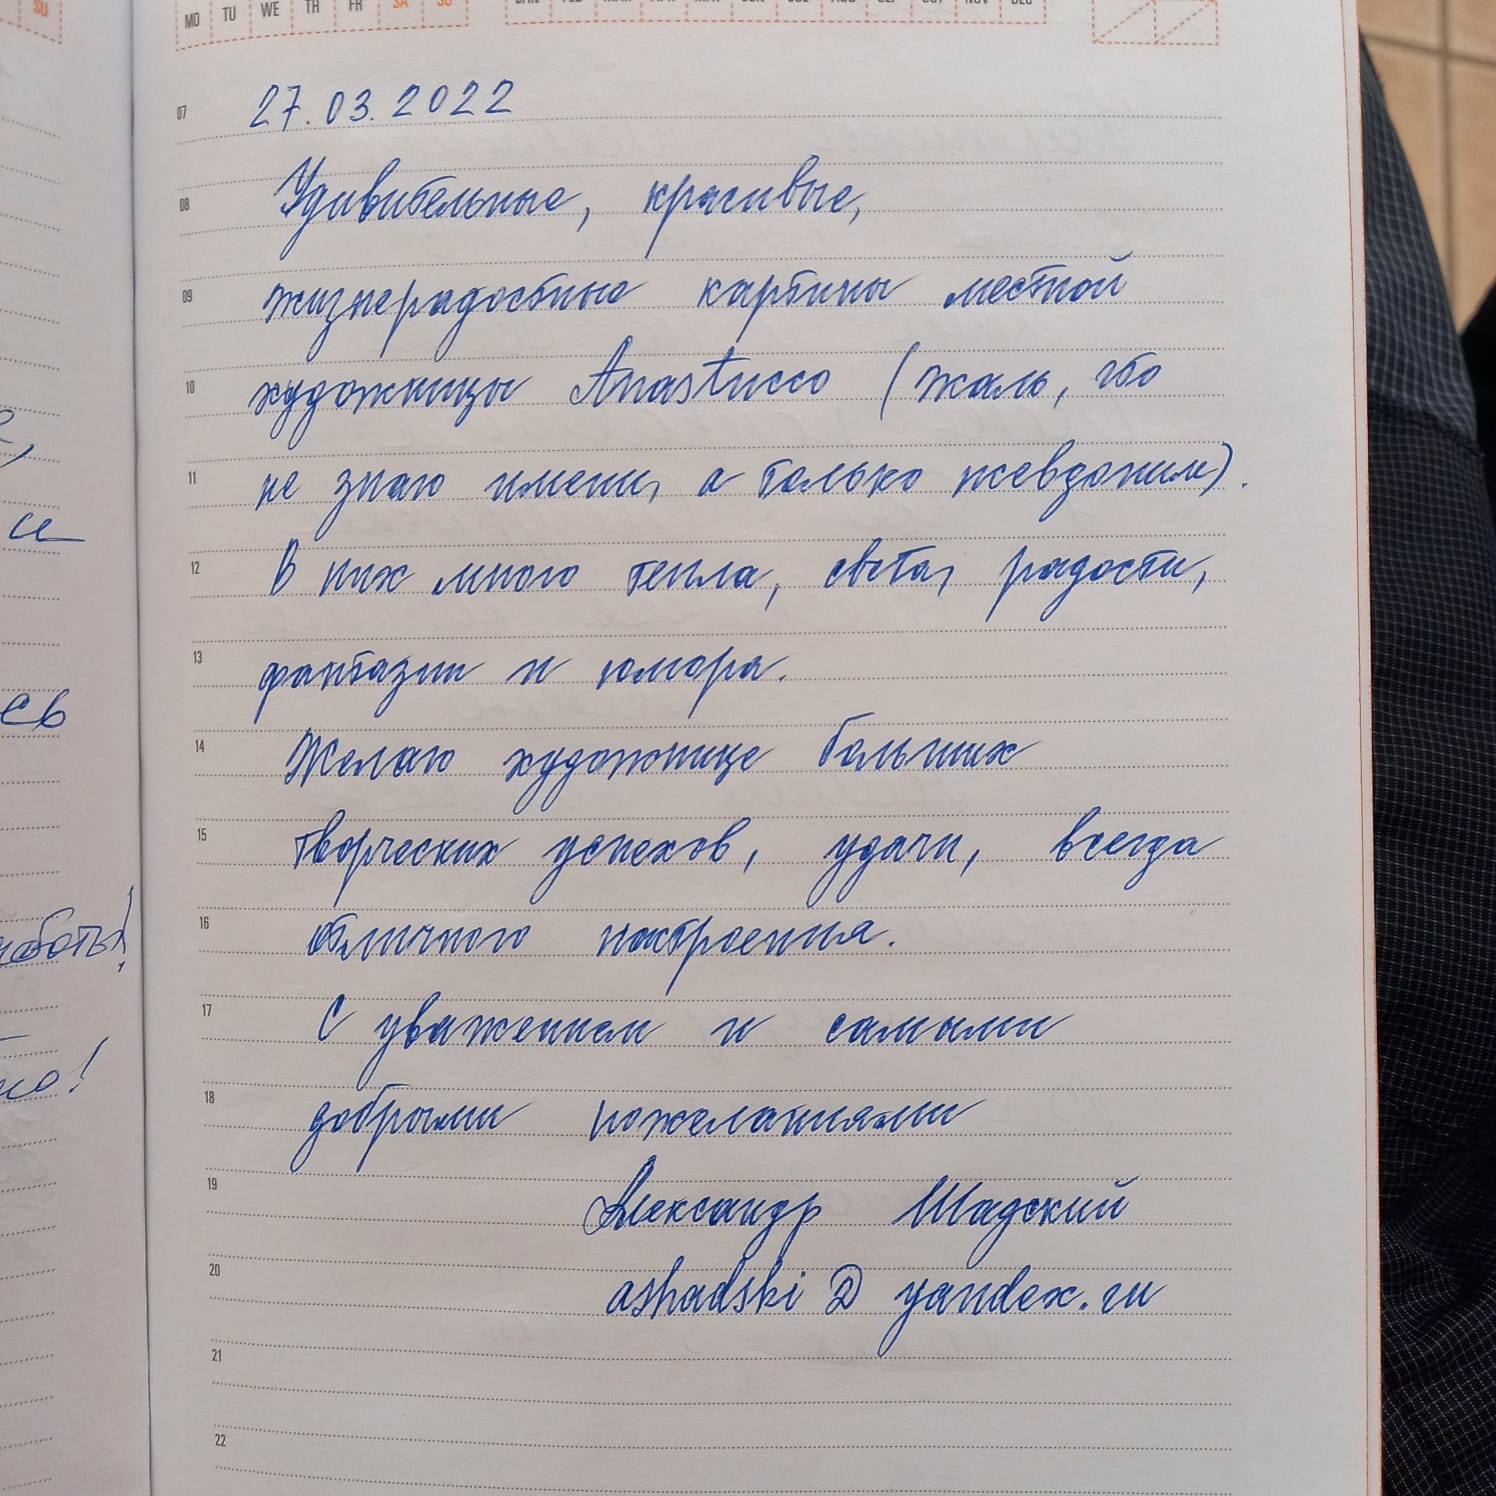 SU
MO TU WE TH FR SA SU
07 27.03.2022
08 Удивительные, красивые,
09 жизнерадостные картины местной
10 художницы Anastucco (жаль, что
11 не знаю имени, а только псевдоним).
12 В них много тепла, света, радости,
13 фантазии и юмора.
14 Желаю художнице больших
15 творческих успехов, удачи, всегда
16 отличного настроения.
17 С уважением и самыми
18 добрыми пожеланиями
19 Александр Шадский
20 ashadski@yandex.ru
21
22